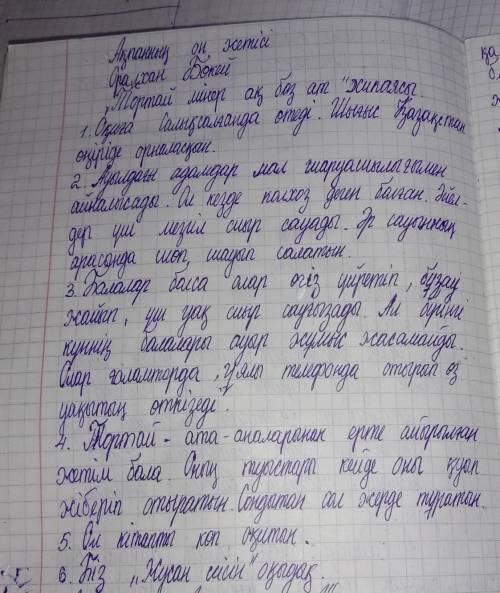 Ақпанның он жетісі
Оралхан Бөкей
„Тортай мінер ақ боз ат" хикаясы.
1. Оқиға Салқсалғанда өтеді. Шығыс Қазақстан
өңіріде орналасқан.
2. Ауылдағы адамдар мал шаруашылығымен
айналысады. Ол кезде колхоз деген болған. Әйел-
дер үш мезгіл сиыр сауады. Әр сауынның
арасында шөп шауып салатын.
3. Балалар болса олар өгіз үйретіп, бұзау
жайып, үш уақ сиыр саугызады. Ал бүгінгі
күннің балалары ауыр жұмыс жасамайды.
Олар ғаламторда, ұялы телефонда отырып өз
уақытың өткізеді.
4. Тортай - ата-аналарынан ерте айырылған
жетім бала. Оның туыстары кейде оны қуып
жіберіп отыратын. Сондықтан сол жерде тұратын.
5. Ол кітапты көп оқитын.
6. Біз „Жусан иісін" оқыдақ.
қа